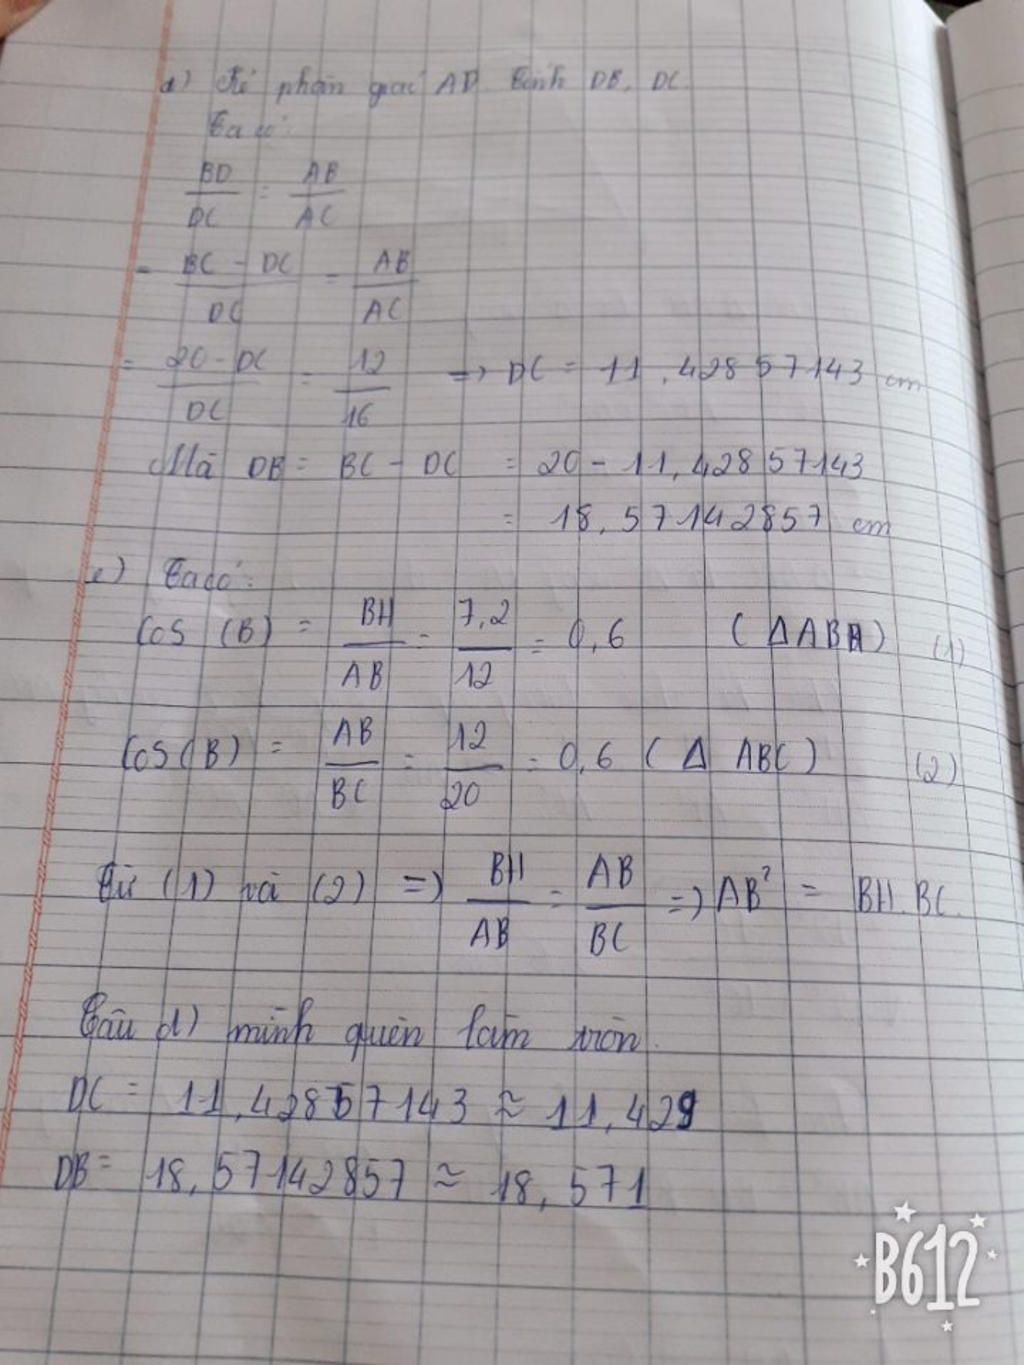 d) Kẻ phân giác AD. Tính DB, DC.
Ta có:
BD/DC = AB/AC
= BC - DC/DC = AB/AC
= 20 - DC/DC = 12/16 => DC = 11,42857143 cm
Mà DB = BC - DC = 20 - 11,42857143
= 18,57142857 cm
e) Ta có:
Cos (B) = BH/AB = 7,2/12 = 0,6 (Δ ABH) (1)
Cos (B) = AB/BC = 12/20 = 0,6 (Δ ABC) (2)
Từ (1) và (2) => BH/AB = AB/BC => AB² = BH.BC.
Câu d) mình quên làm tròn.
DC = 11,42857143 ≈ 11,429
DB = 18,57142857 ≈ 18,571
B612